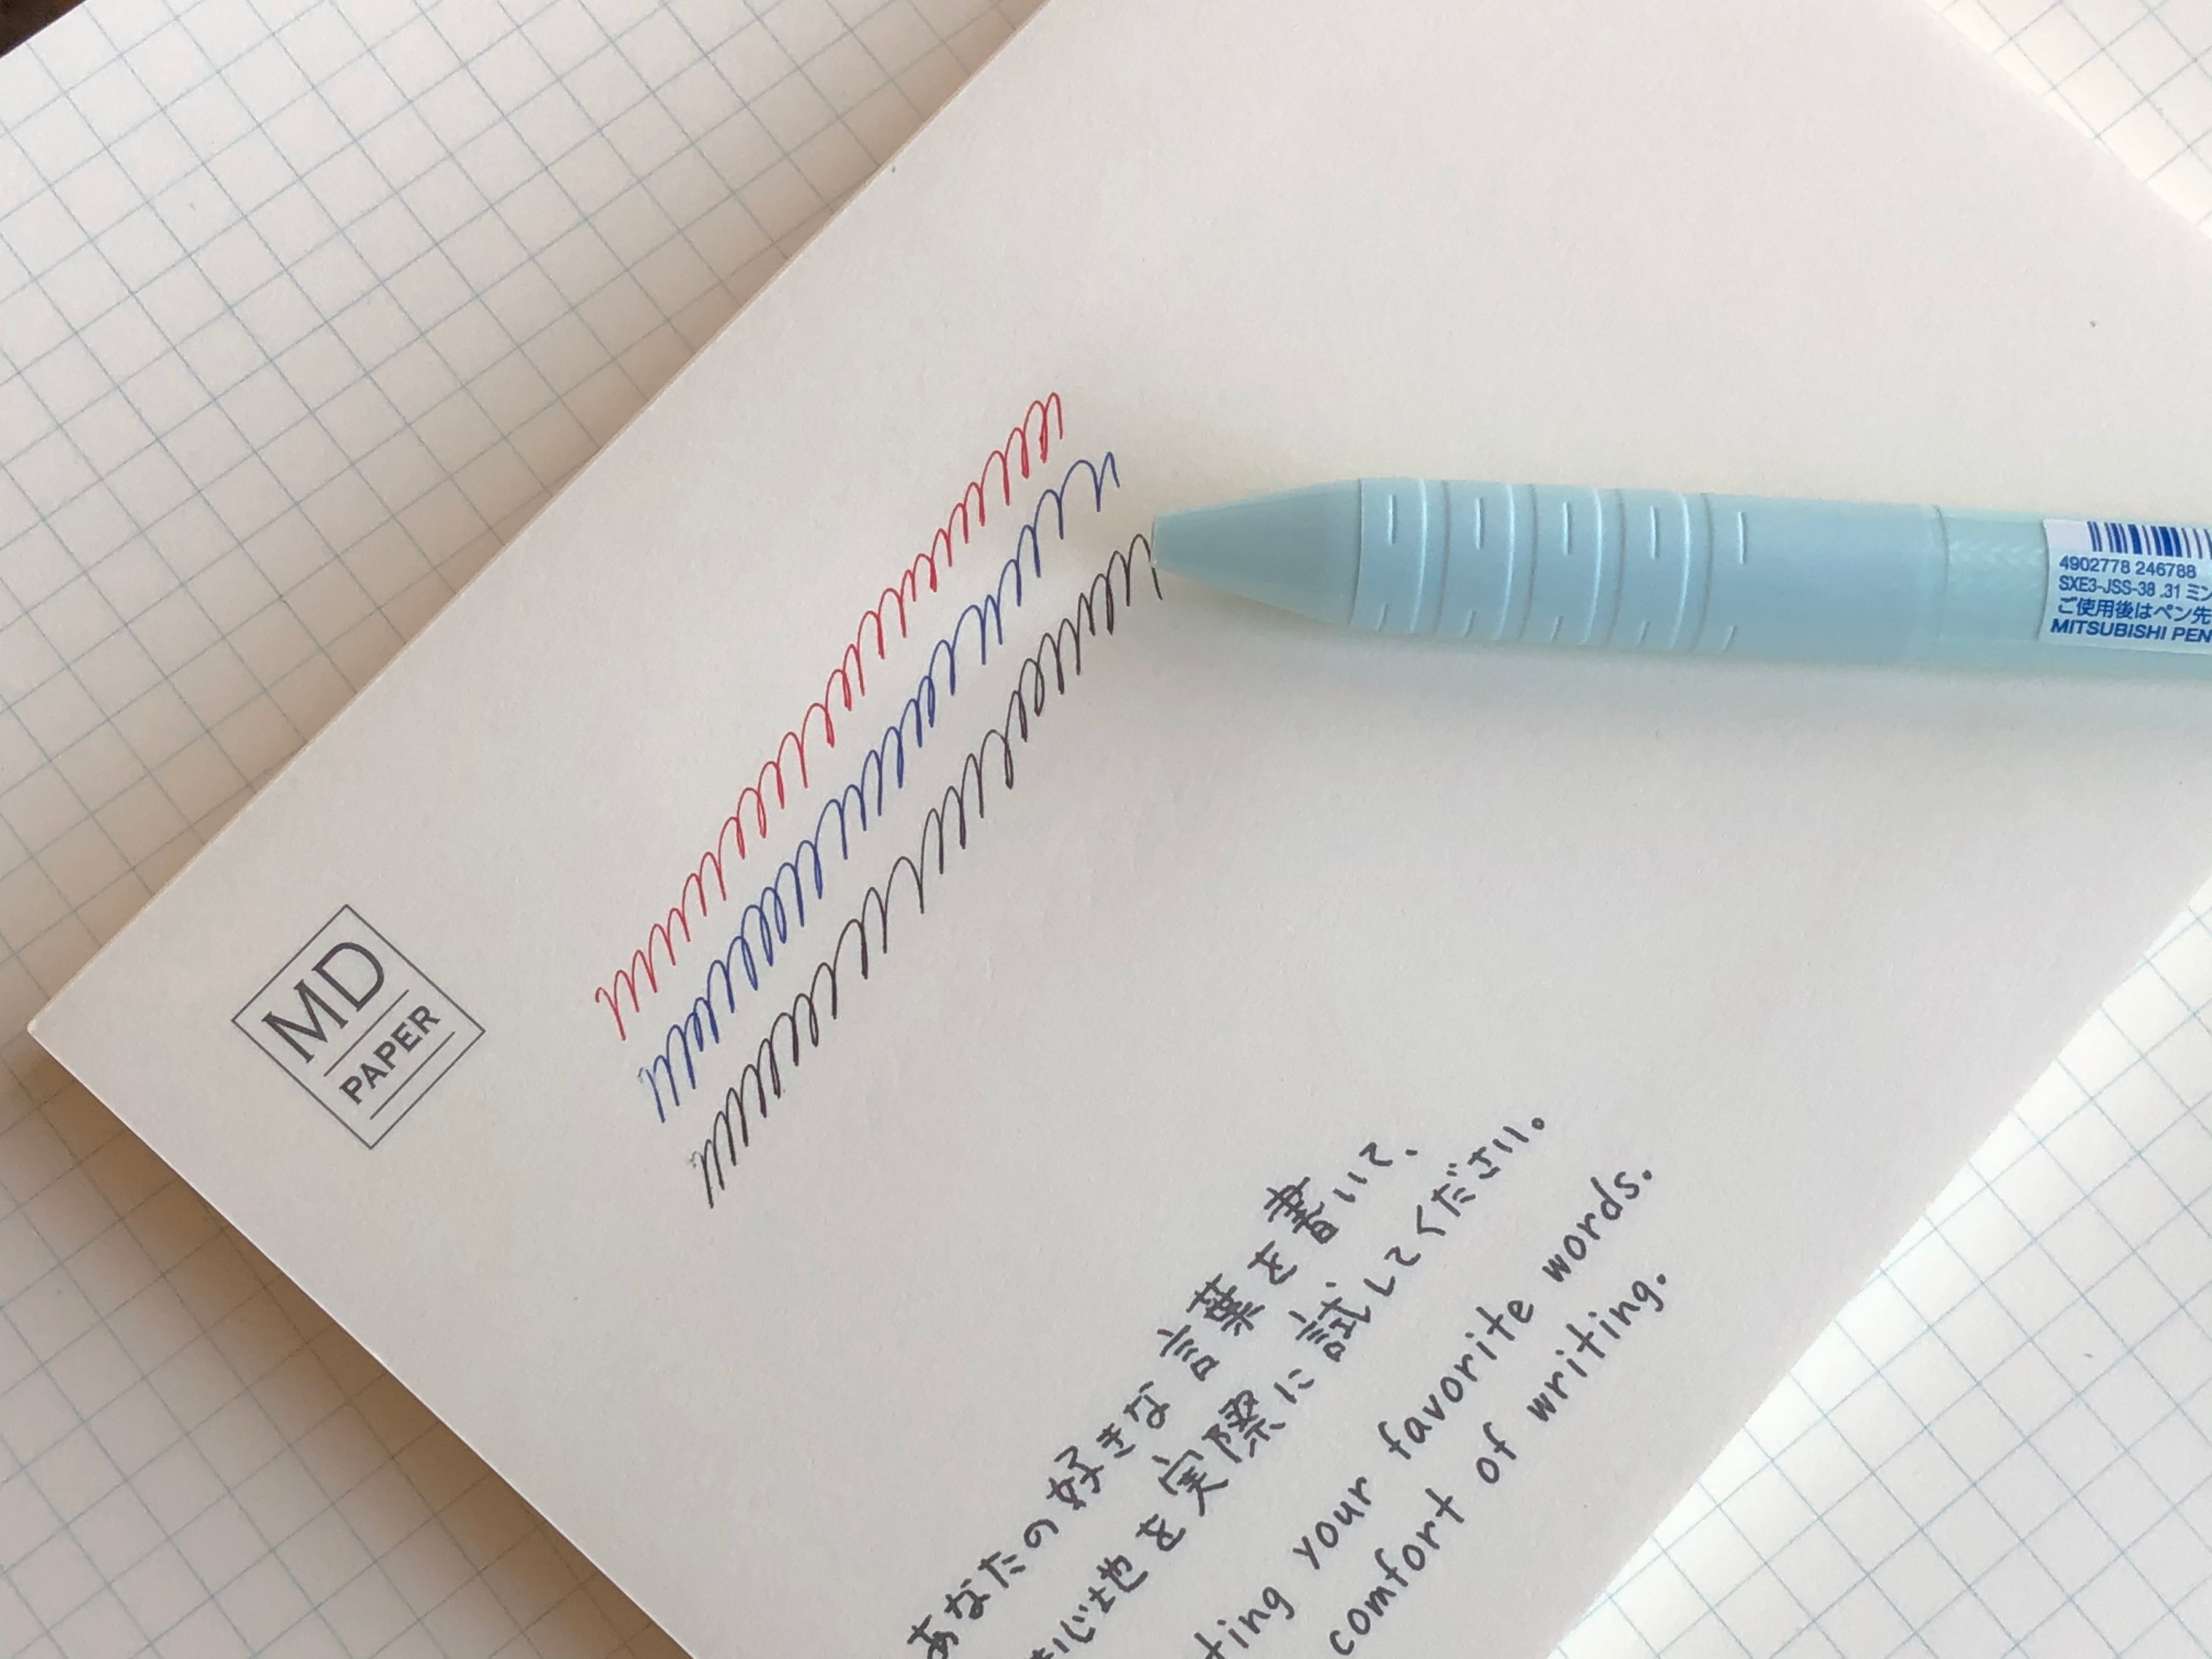 MD
PAPER
あなたの好きな言葉を書いて、
心地を実際に試してください。
your favorite words.
comfort of writing.
4902778 246788
SXE3-JSS-38 .31
ご使用後はペン先
MITSUBISHI PEN